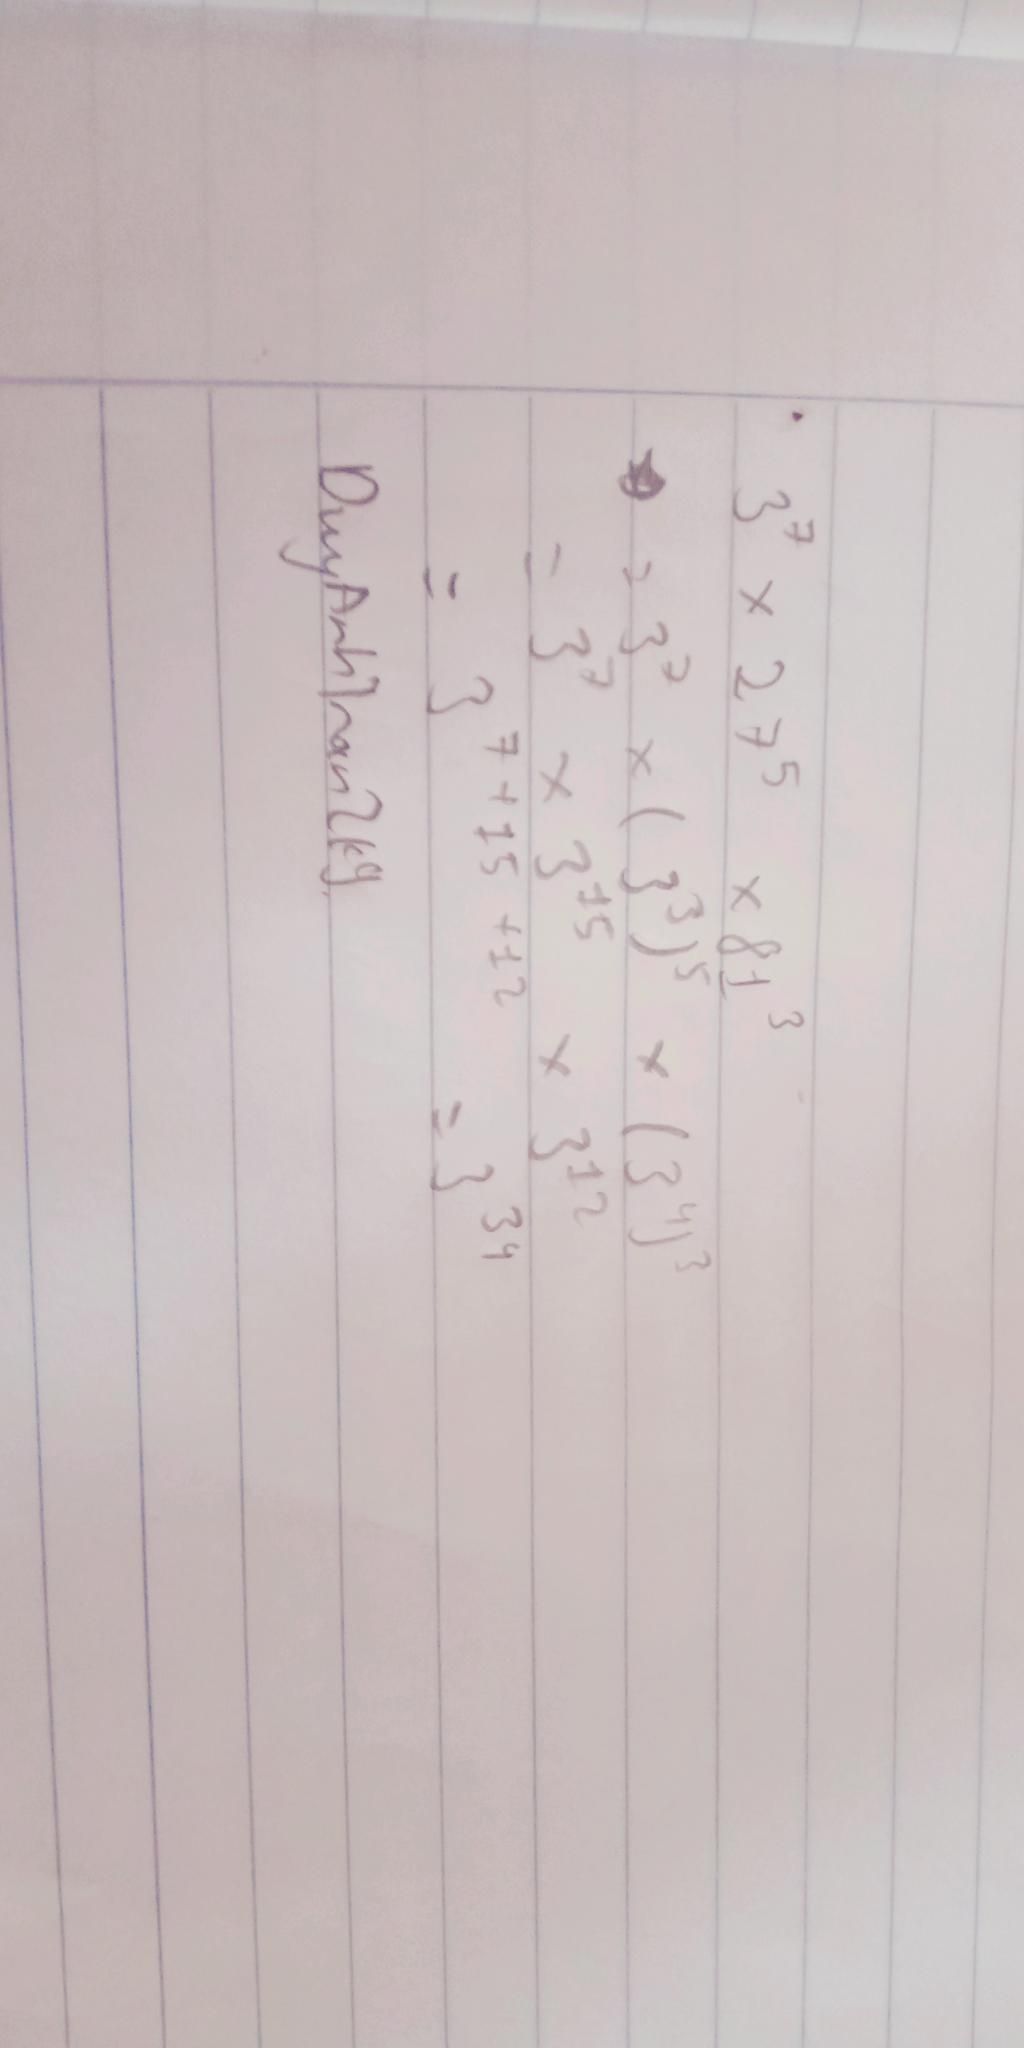 3⁷ × 27⁵ × 81³
= 3⁷ × (3³)⁵ × (3⁴)³
= 3⁷ × 3¹⁵ × 3¹²
= 3⁷⁺¹⁵⁺¹² = 3³⁴
DuyAnhTran2k9